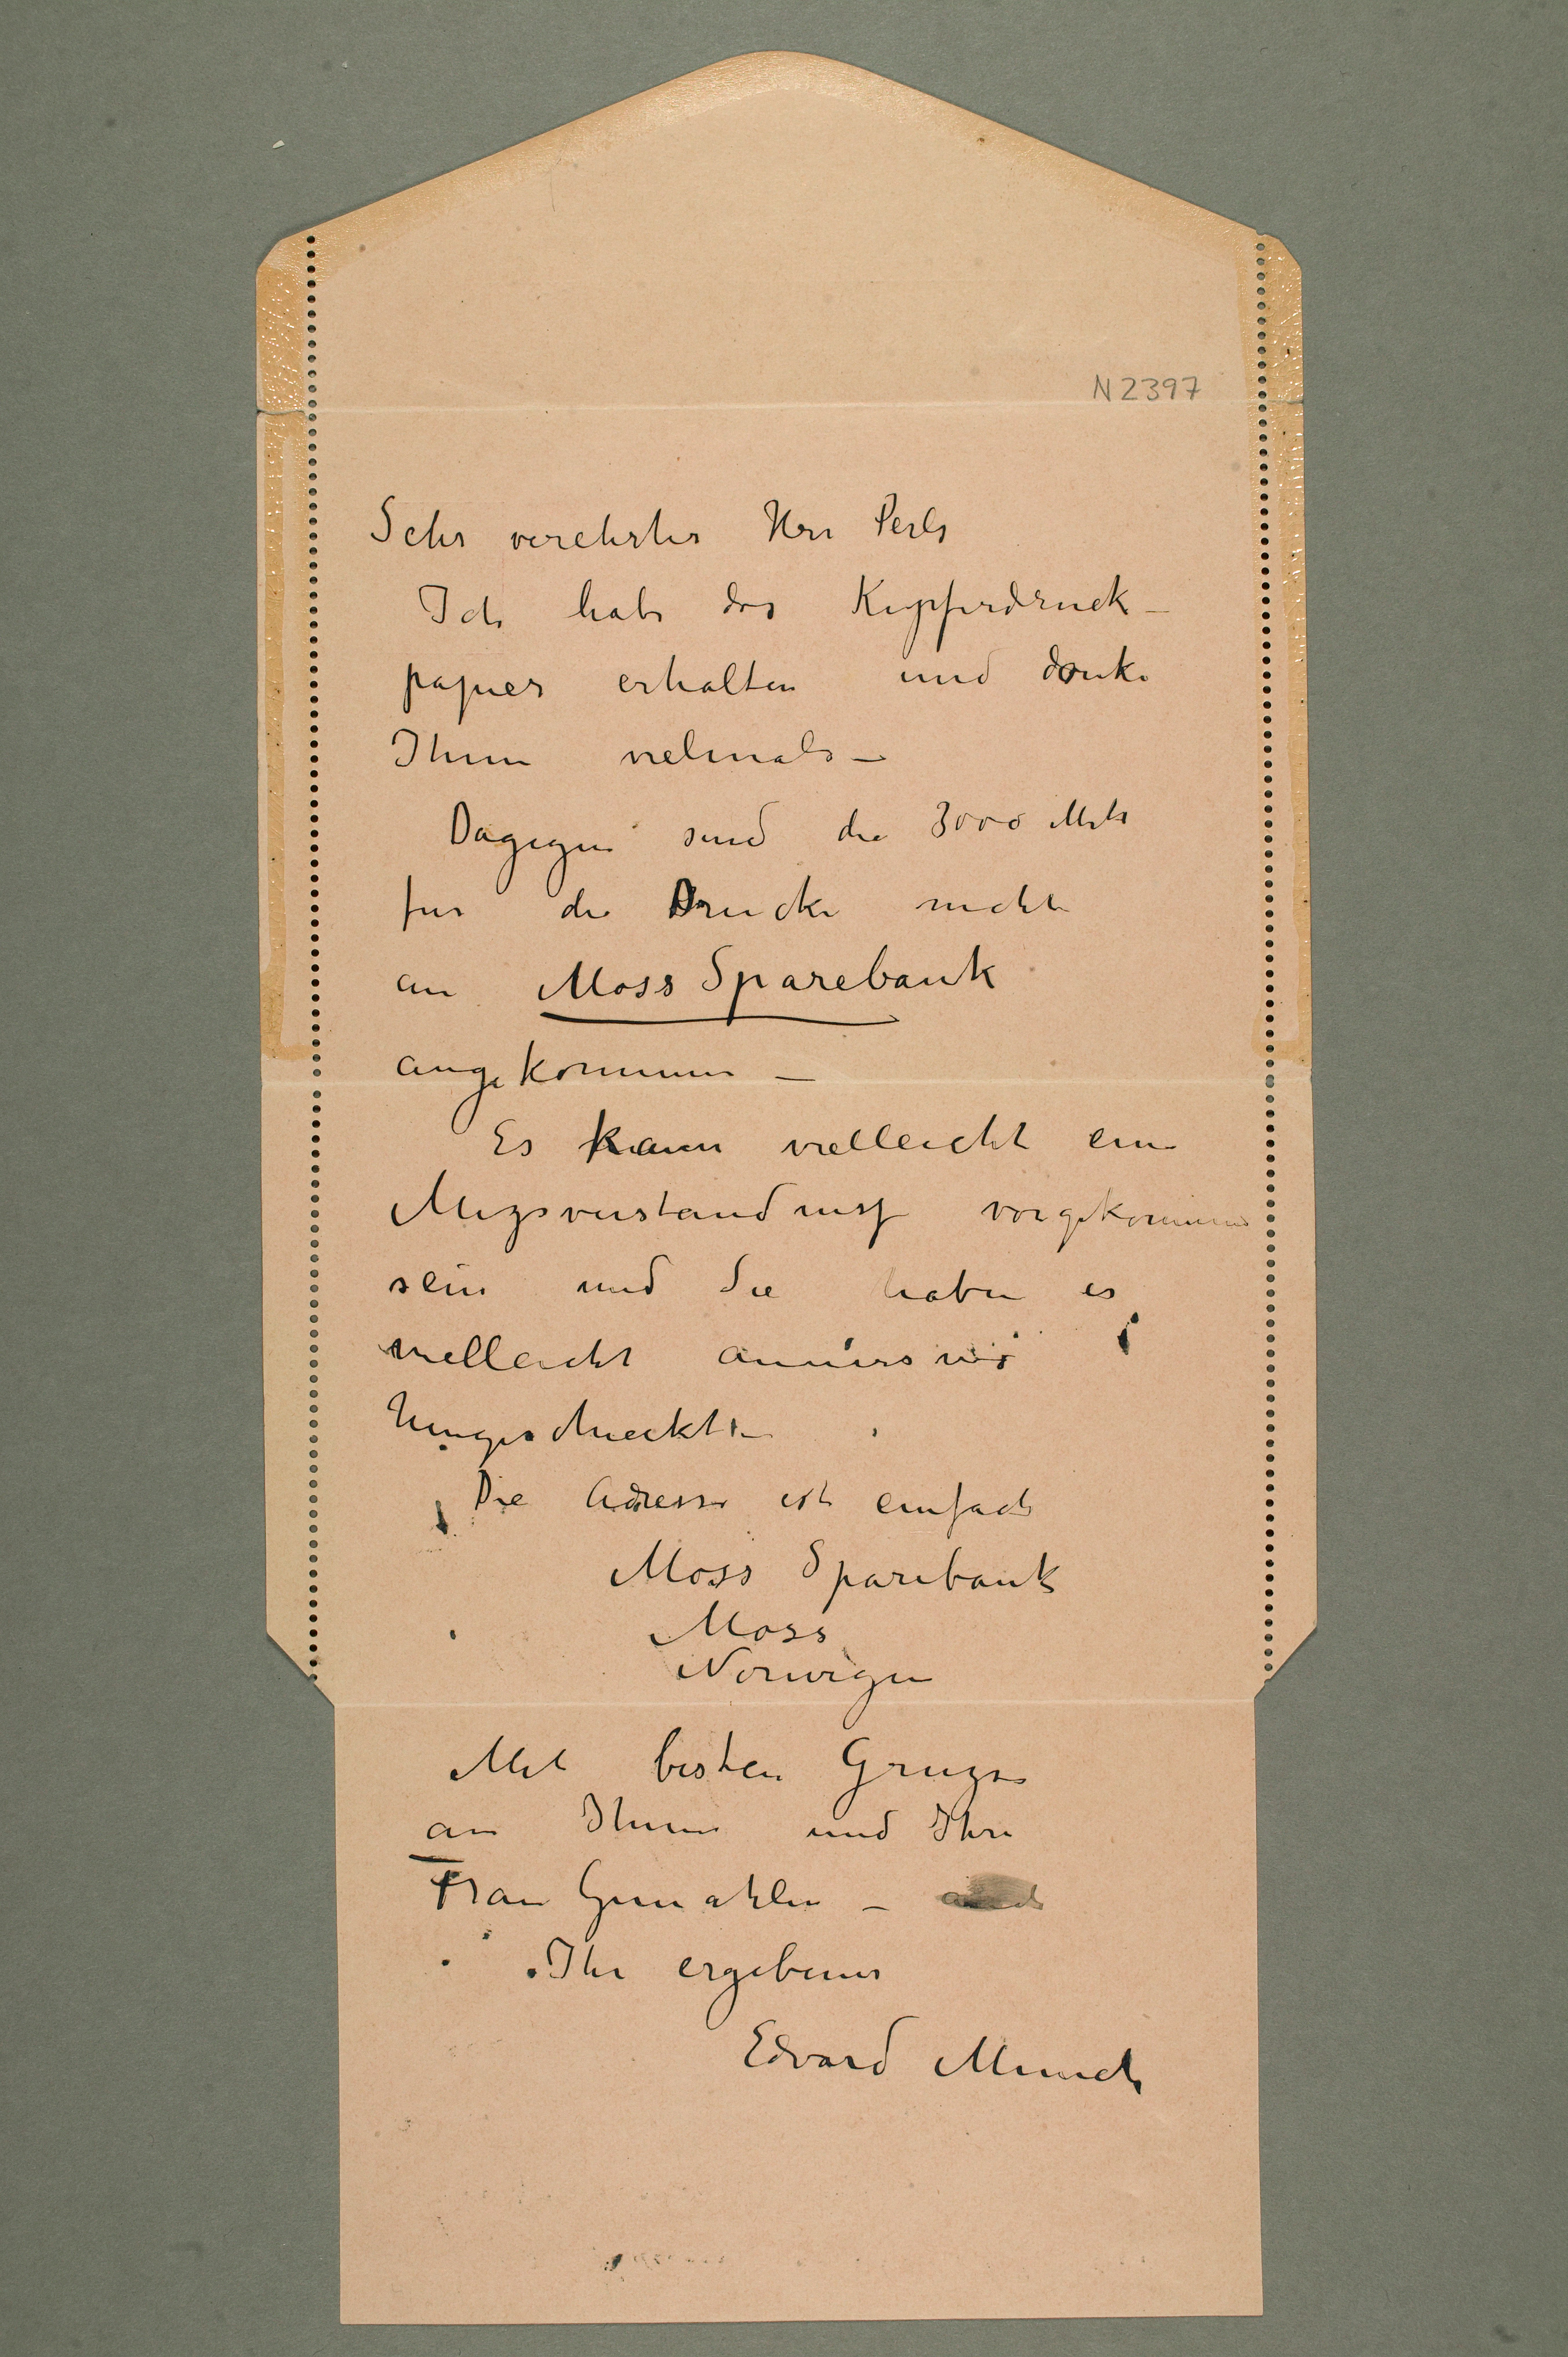 N 2397
Sehr verehrter Herr Perls
Ich habe das Kupferdruck–
papier erhalten und danke
Ihnen vielmals –
Dagegen sind die 3000 Mk
für die Drucke nicht
an Moss Sparebank
angekommen –
Es kann vielleicht ein
Mizsverstandniss vorgekommen
sein und Sie haben es
vielleicht anderswo
hingeschieckt
Die Adresse ist einfach
Moss Sparebank
Moss
Norwegen
Mit besten Gruzse
an Ihnen und Ihre
Frau Gemahlin –
Ihr ergebener
Edvard Munch